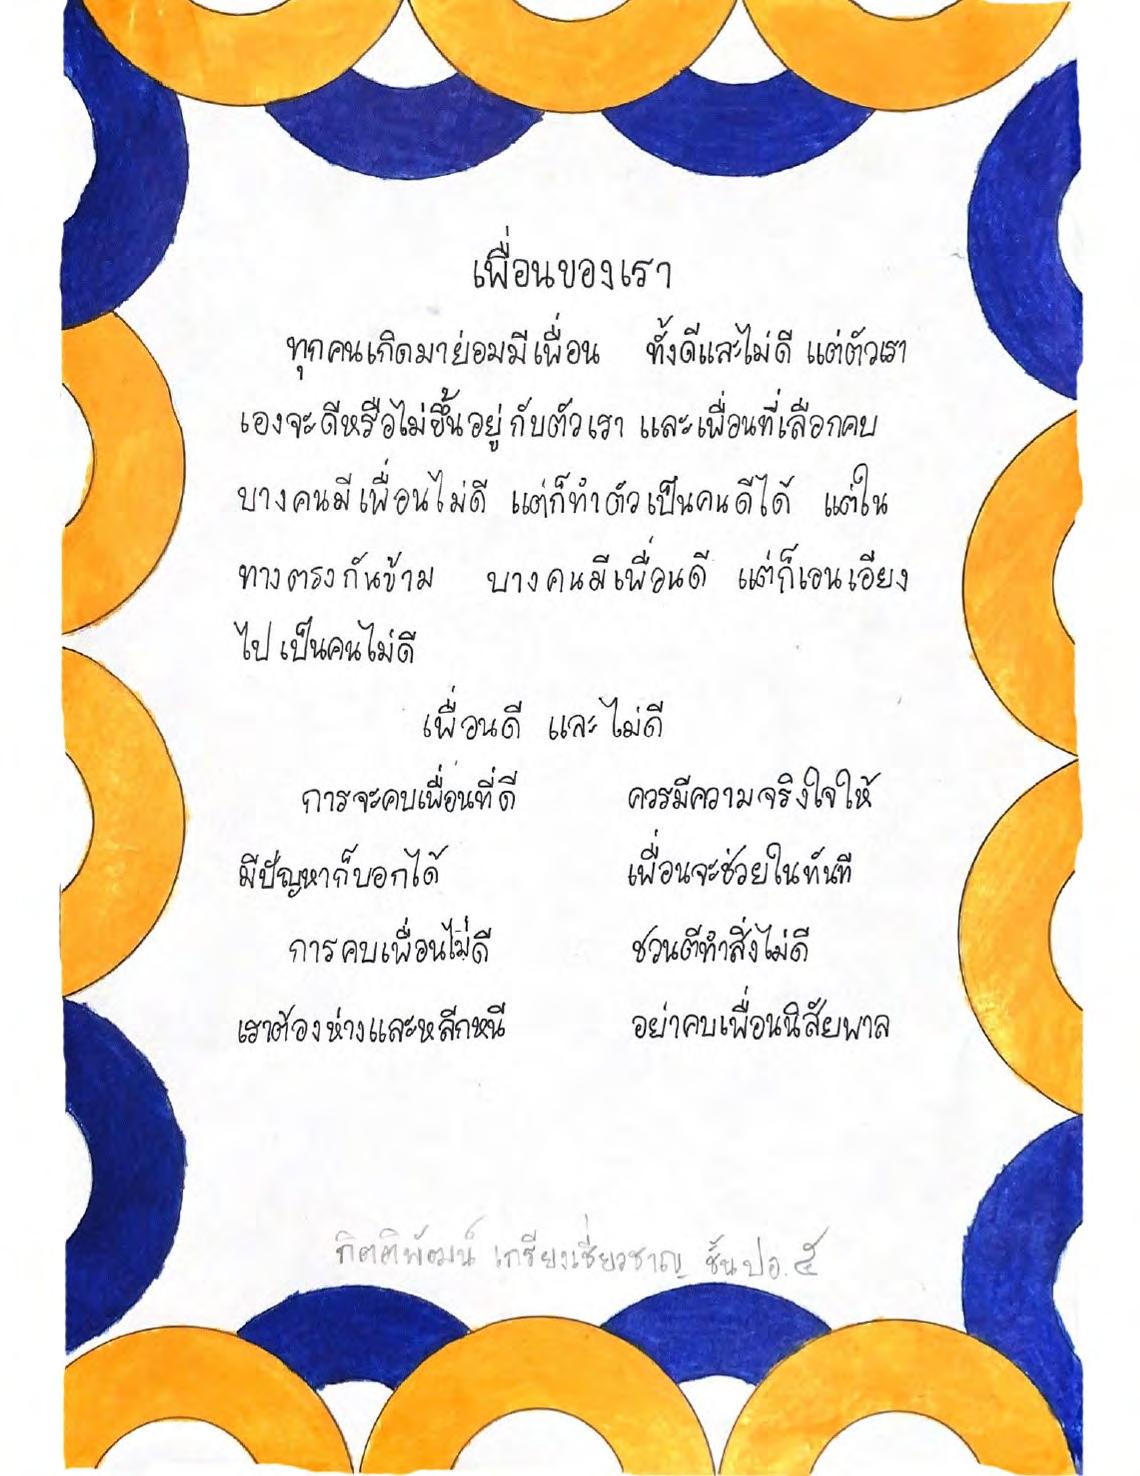 เพื่อนของเรา
ทุกคนเกิดมาย่อมมีเพื่อน ทั้งดีและไม่ดี แต่ตัวเรา
เองจะดีหรือไม่ขึ้นอยู่กับตัวเรา และเพื่อนที่เลือกคบ
บางคนมีเพื่อนไม่ดี แต่ก็ทำตัวเป็นคนดีได้ แต่ใน
ทางตรงกันข้าม บางคนมีเพื่อนดี แต่ก็เอนเอียง
ไปเป็นคนไม่ดี
เพื่อนดี และไม่ดี
การจะคบเพื่อนที่ดี ควรมีความจริงใจให้
มีปัญหาก็บอกได้ เพื่อนจะช่วยในทันที
การคบเพื่อนไม่ดี ชวนตีทำสิ่งไม่ดี
เราต้องห่างและหลีกหนี อย่าคบเพื่อนนิสัยพาล
กิตติพัฒน์ เกรียงเชี่ยวชาญ ชั้นปอ. ๕